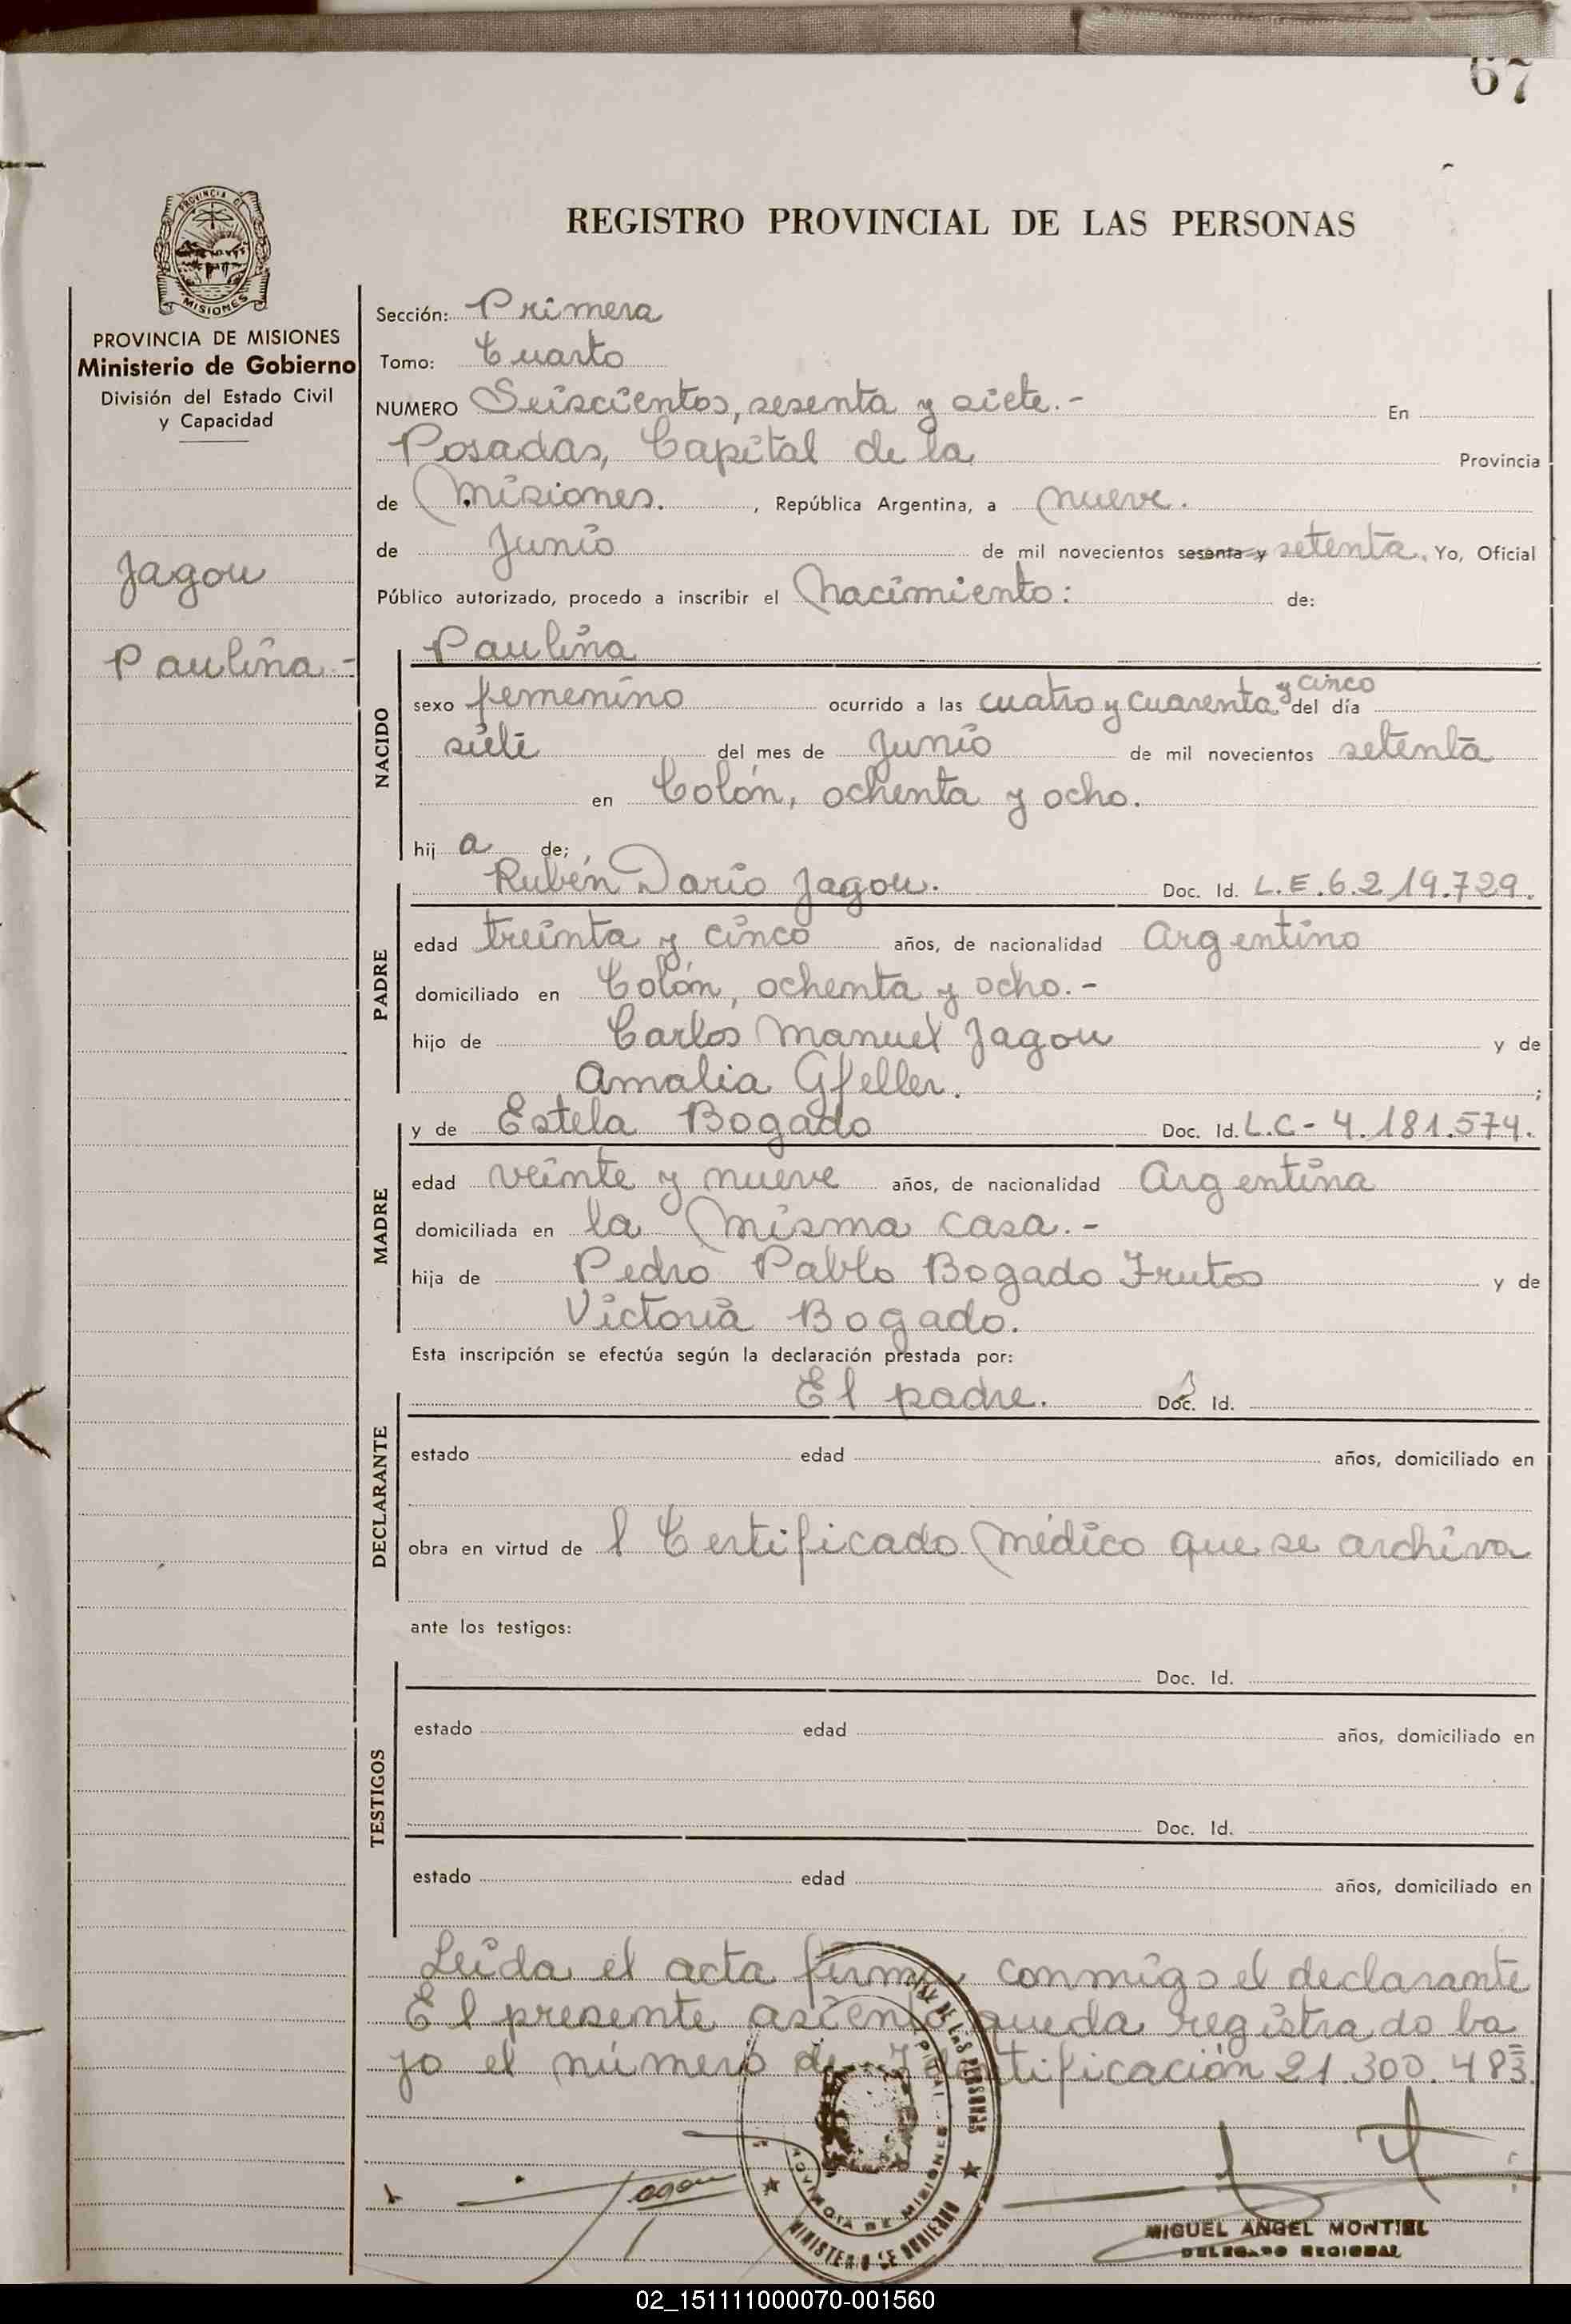 67
REGISTRO PROVINCIAL DE LAS PERSONAS
PROVINCIA DE
MISIONES
PROVINCIA DE MISIONES
Ministerio de Gobierno
División del Estado Civil
y Capacidad
Jagou
Paulina.-
Sección: Primera
Tomo: Cuarto
NUMERO Seiscientos, sesenta y siete.- En
Posadas, Capital de la Provincia
de Misiones. , República Argentina, a nueve.
de Junio de mil novecientos sesenta y setenta. Yo, Oficial
Público autorizado, procedo a inscribir el Nacimiento: de:
NACIDO
Paulina
sexo femenino ocurrido a las cuatro y cuarenta y cinco del día
siete del mes de Junio de mil novecientos setenta
en Colón, ochenta y ocho.
hij a de;
PADRE
Rubén Darío Jagou. Doc. Id. L.E.6.219.729.
edad treinta y cinco años, de nacionalidad Argentino
domiciliado en Colón, ochenta y ocho.-
hijo de Carlos Manuel Jagou y de
Amalia Gfeller. ;
MADRE
y de Estela Bogado Doc. Id. L.C-4.181.574.
edad veinte y nueve años, de nacionalidad Argentina
domiciliada en la misma casa.-
hija de Pedro Pablo Bogado Frutos y de
Victoria Bogado.
Esta inscripción se efectúa según la declaración prestada por:
DECLARANTE
El padre. Doc. Id.
estado edad años, domiciliado en
obra en virtud de l Certificado Médico que se archiva
ante los testigos:
TESTIGOS
Doc. Id.
estado edad años, domiciliado en
Doc. Id.
estado edad años, domiciliado en
Leída el acta firma conmigo el declarante
El presente asiento queda registrado ba
jo el número de Identificación 21.300.483.
Jagou
MIGUEL ANGEL MONTIEL
DELEGADO REGIONAL
DE LAS PERSONAS
PROVINCIA DE MISIONES
MINISTERIO DE GOBIERNO
02_151111000070-001560